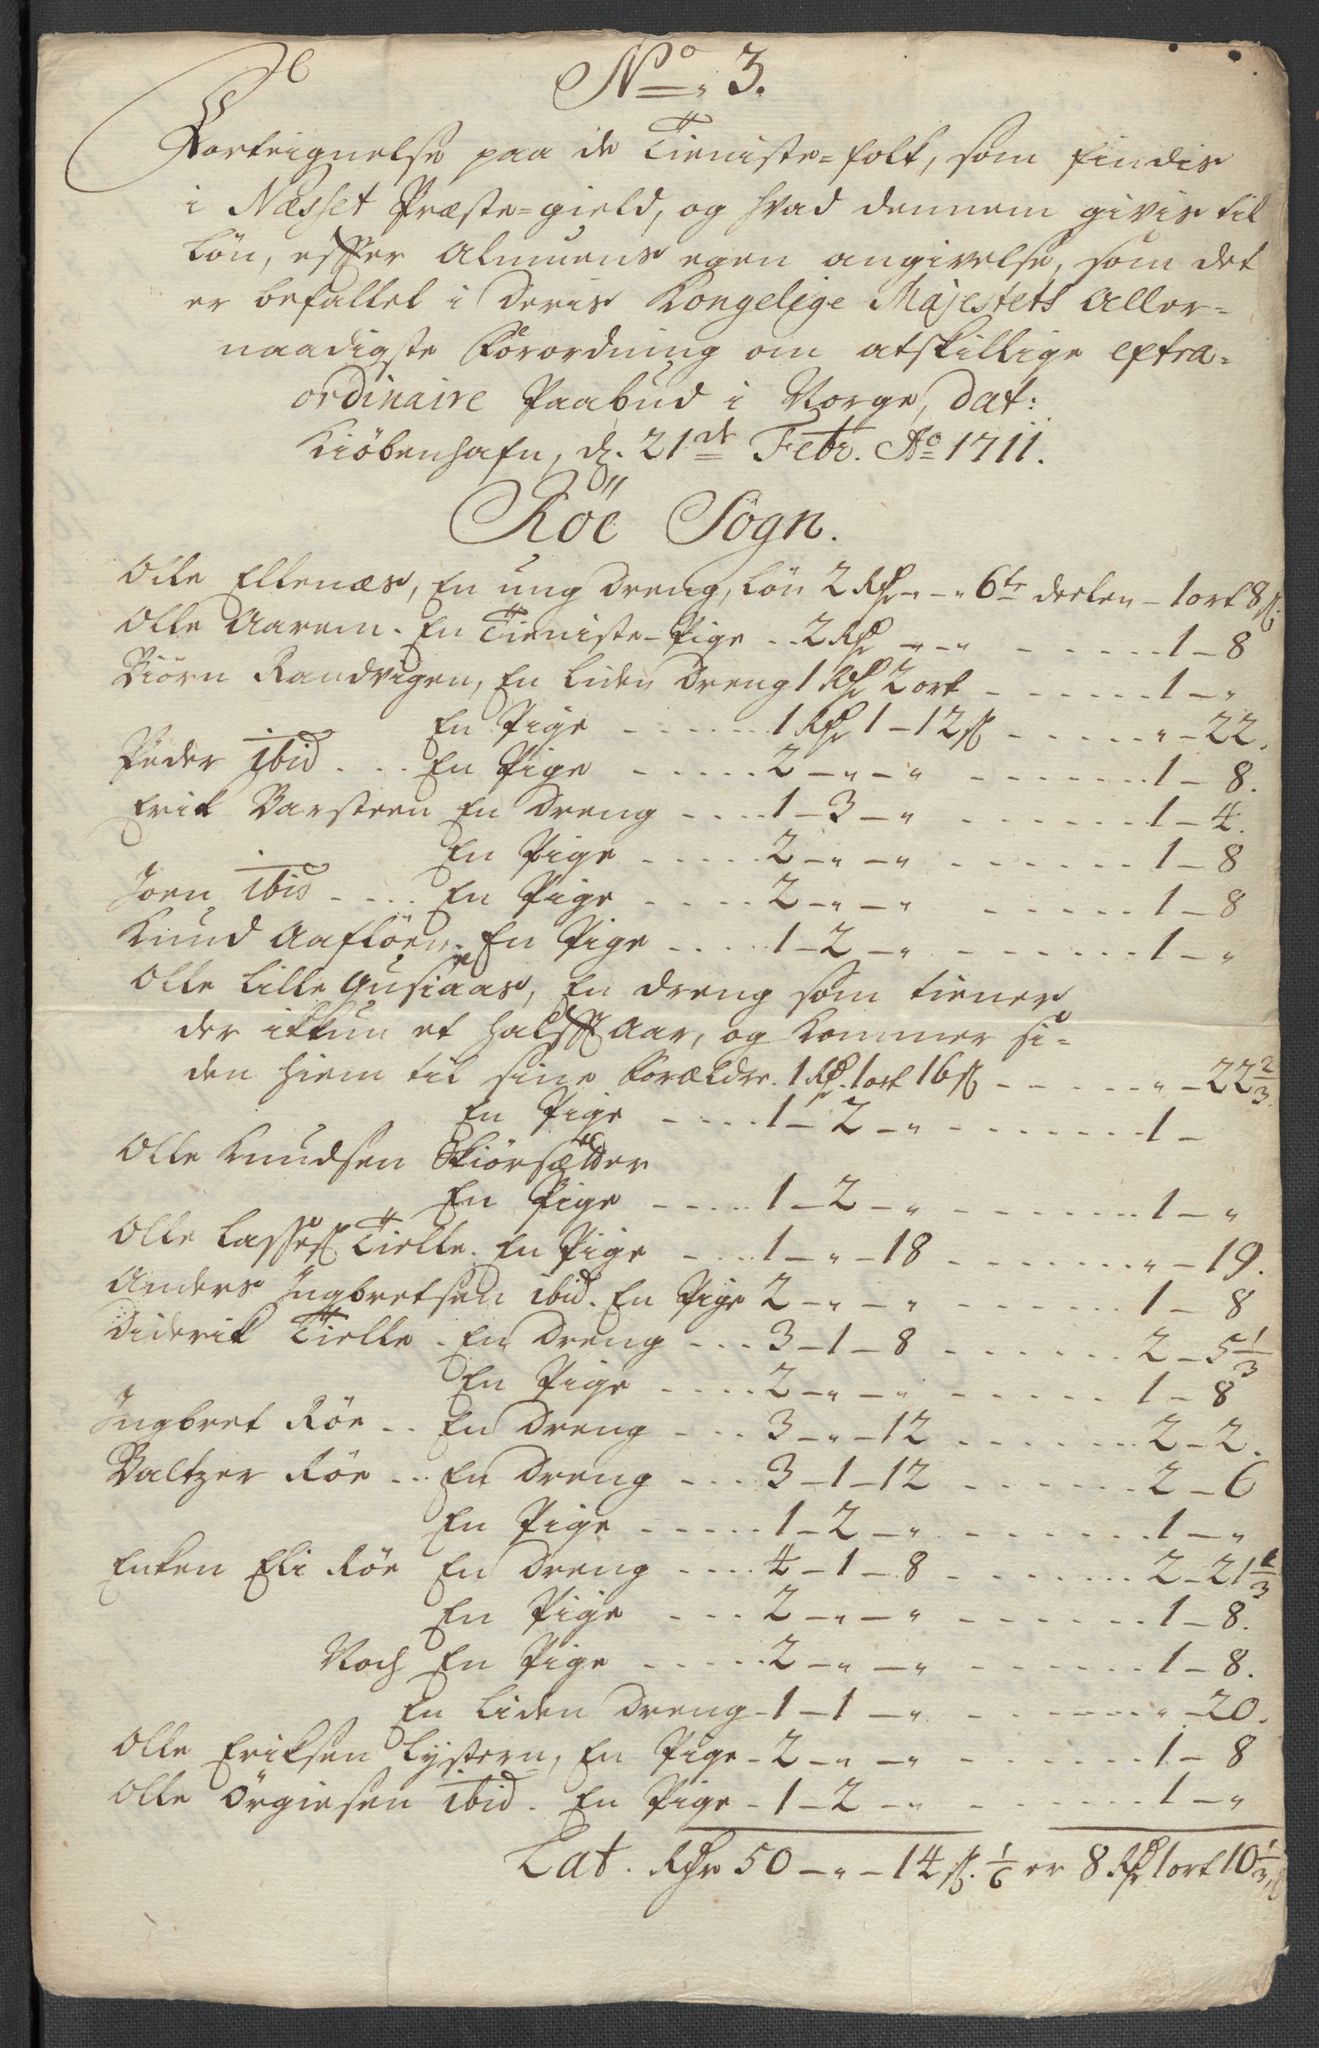 No. 3.
Forteignelse paa de Tieniste-folk, som findis
i Næsset Præste-gield, og hvad dennem givis til
Løn, effter Almuens egen angivelse, som det
er befallet i Deris Kongelige Majestets Aller-
naadigste Forordning om atskillige extra-
ordinaire Paabud i Norge, dat:
Kiöbenhafn, d. 21de Febr. Ao 1711.
Röe Sogn.
Olle Ellenæs, En ung dreng, Lön 2 Rdr - „ - „ 6te deelen - 1 ort 8 s.
Olle Aarem. En Tieniste-Pige .. 2 Rdr „ - „ ...... 1 - 8
Biörn Randvigen, En liden Dreng 1 Rdr 2 ort ...... 1 - „
En Pige ...... 1 Rdr 1 - 12 s ...... „ - 22.
Peder ibid .... En Pige ...... 2 - „ - „ ...... 1 - 8.
Erik Varsteen En Dreng .... 1 - 3 - „ ...... 1 - 4.
En Pige ..... 2 - „ - „ ...... 1 - 8
Joen ibid .... En Pige ..... 2 - „ - „ ...... 1 - 8
Knud Aaflöen. En Pige ..... 1 - 2 - „ ...... 1 - „
Olle Lille Gusiaas, En dreng som tiener
der ikkun et halfft Aar, og kommer si-
den hiem til sine Forældre. 1 Rdr. 1 ort 16 s ..... „ - 22 2/3.
En Pige ..... 1 - 2 - „ ...... 1 -
Olle Knudsen Skiörsætter
En Pige ..... 1 - 2 - „ ...... 1 - „
Olle Lasses. Tielle. En Pige .... 1 - „ - 18 ...... „ - 19.
Anders Ingbretsen ibid. En Pige 2 - „ - „ ...... 1 - 8
Diderik Tielle. En Dreng ... 3 - 1 - 8 ...... 2 - 5 1/3
En Pige .... 2 - „ - „ ...... 1 - 8
Ingbret Röe .. En Dreng .... 3 - „ - 12 ...... 2 - 2.
Baltzer Röe ... En Dreng .... 3 - 1 - 12 ...... 2 - 6
En Pige ..... 1 - 2 - „ ...... 1 - „
Enken Eli Röe En Dreng .... 4 - 1 - 8 ...... 2 - 21 1/3
En Pige .... 2 - „ - „ ...... 1 - 8.
Noch En Pige ..... 2 - „ - „ ...... 1 - 8.
En liden Dreng - 1 - 1 - „ ...... „ - 20.
Olle Eriksen Lystern, En Pige - 2 - „ - „ ...... 1 - 8
Olle Örgiesen ibid. En Pige - 1 - 2 - „ ...... 1 - „
Lat. Rdr 50 - „ - 14 s. 1/6 er 8 Rdr 1 ort 10 1/3 s